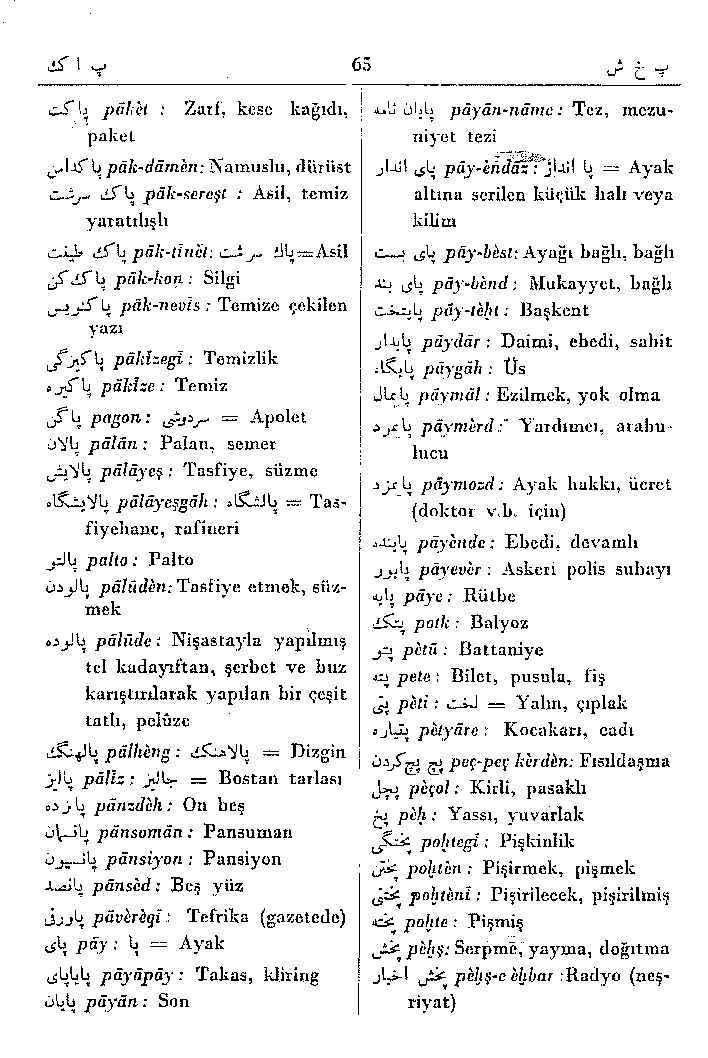 پ ا ك 65 پ خ ش
پاكت pākèt : Zarf, kese kağıdı,
paket
پاكدامن pāk-dāmèn: Namuslu, dürüst
پاك سرشت pāk-sereşt : Asil, temiz
yaratılışlı
پاك طینت pāk-tînèt: پاك سرشت = Asil
پاك كن pāk-kon : Silgi
پاكنویس pāk-nevîs : Temize çekilen
yazı
پاكیزگی pākîzegî : Temizlik
پاكیزه pākîze : Temiz
پاگن pagon : سردوشی = Apolet
پالان pālān : Palan, semer
پالایش pālāyeş : Tasfiye, süzme
پالایشگاه pālāyeşgāh : پالشگاه = Tas-
fiyehane, rafineri
پالتو palto : Palto
پالودن pālûdèn: Tasfiye etmek, süz-
mek
پالوده pālûde : Nişastayla yapılmış
tel kadayıftan, şerbet ve buz
karıştırılarak yapılan bir çeşit
tatlı, pelûze
پالهنگ pālhèng : پالاهنگ = Dizgin
پالیز pālîz : جالیز = Bostan tarlası
پانزده pānzdèh : On beş
پانسمان pānsomān : Pansuman
پانسیون pānsiyon : Pansiyon
پانصد pānsèd : Beş yüz
پاورقی pāvèrèqî : Tefrika (gazetede)
پای pāy : پا = Ayak
پایاپای pāyāpāy : Takas, kliring
پایان pāyān : Son
پایان نامه pāyān-nāme : Tez, mezu-
niyet tezi
پای انداز pāy-èndāz : پا انداز = Ayak
altına serilen küçük halı veya
kilim
پای بست pāy-bèst: Ayağı bağlı, bağlı
پای بند pāy-bènd : Mukayyet, bağlı
پایتخت pāy-tèḫt : Başkent
پایدار pāydār : Daimi, ebedi, sabit
پایگاه pāygāh : Üs
پایمال pāymāl : Ezilmek, yok olma
پایمرد pāymèrd : Yardımcı, arabu-
lucu
پایمزد pāymozd : Ayak hakkı, ücret
(doktor v.b. için)
پاینده pāyènde : Ebedi, devamlı
پایور pāyevèr : Askeri polis subayı
پایه pāye : Rütbe
پتك potk : Balyoz
پتو pètû : Battaniye
پته pete : Bilet, pusula, fiş
پتی pèti : لخت = Yalın, çıplak
پتیاره pètyāre : Kocakarı, cadı
پچ پچ كردن peç-peç kèrdèn: Fısıldaşma
پچل pèçol : Kirli, pasaklı
پخ pèḫ : Yassı, yuvarlak
پختگی poḫtegî : Pişkinlik
پختن poḫtèn : Pişirmek, pişmek
پختنی poḫtènî : Pişirilecek, pişirilmiş
پخته poḫte : Pişmiş
پخش pèḫş: Serpme, yayma, doğıtma
پخش اخبار pèḫş-e èḫbar : Radyo (neş-
riyat)